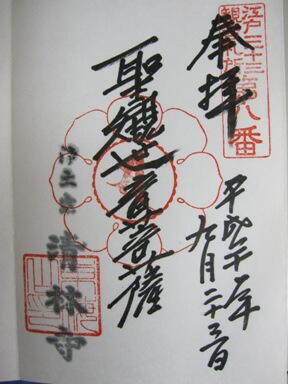 江戸三十三
観音札所
第八番
奉拝
平成二十一年
九月二十三日
聖観世音菩薩
浄土宗
清林寺